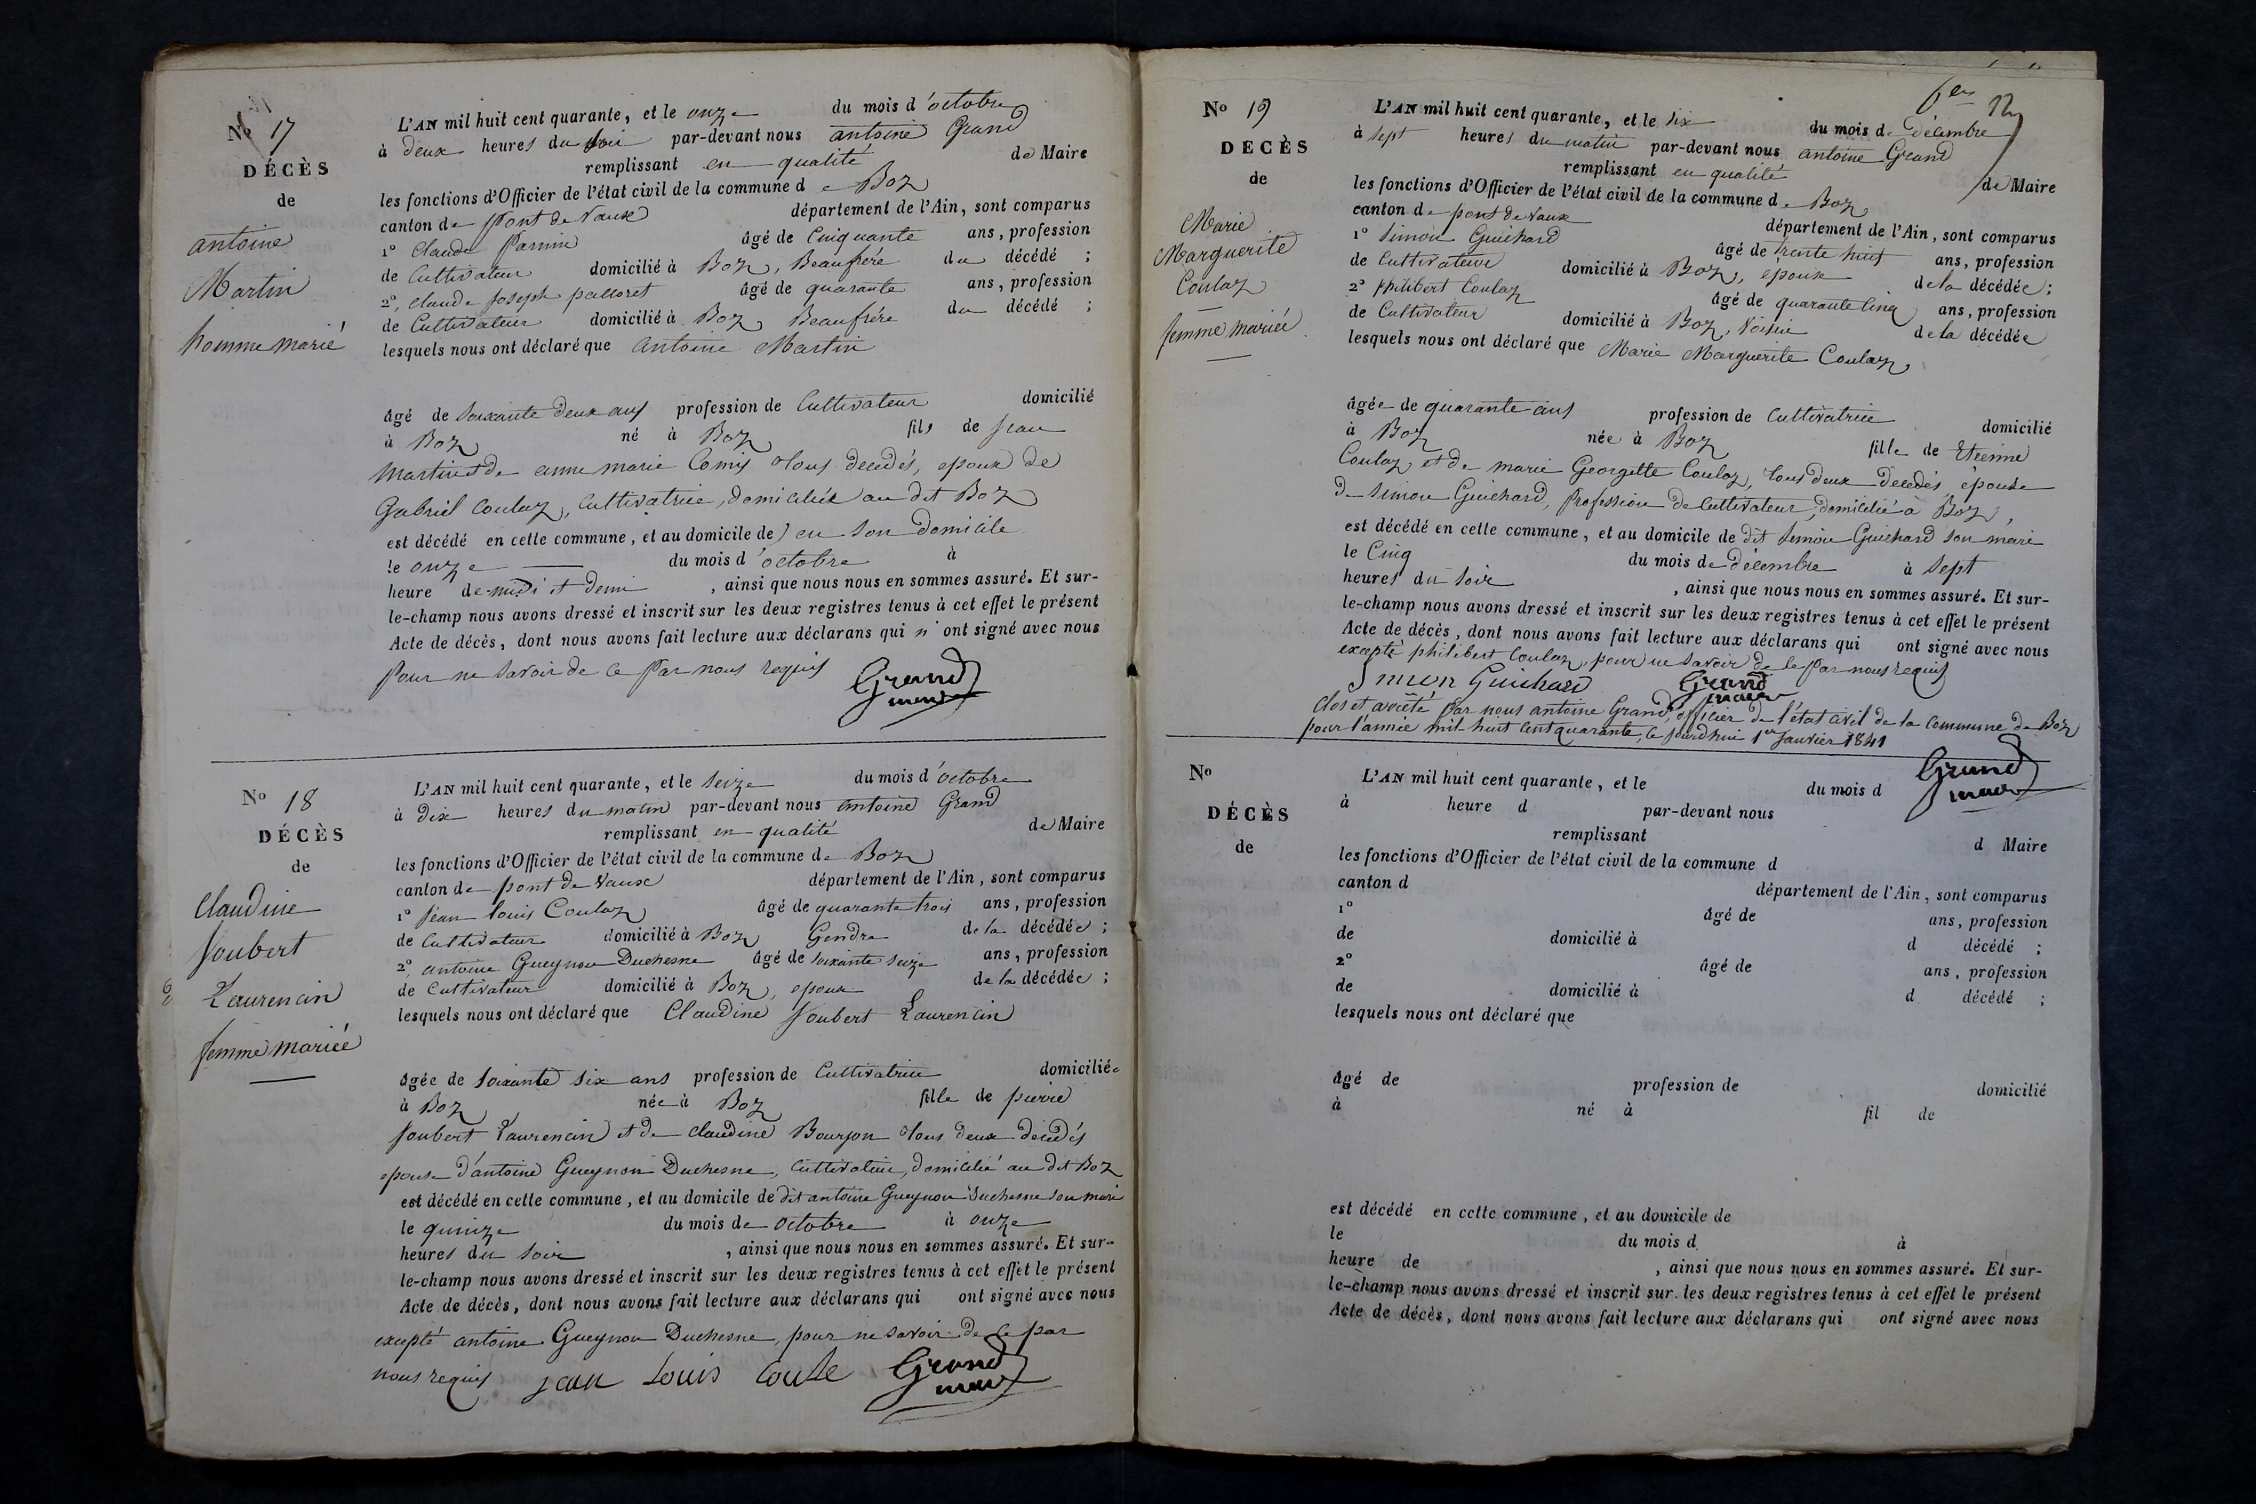 No 17
DÉCÈS
de
antoine
Martin
homme marié
L'AN mil huit cent quarante, et le onze du mois d'octobre
à deux heures du soir par-devant nous antoine Grand
remplissant en qualité de Maire
les fonctions d'Officier de l'état civil de la commune de Boz
canton de pont de Vaux département de l'Ain, sont comparus
1° Claude âgé de Cinquante ans, profession
de Cultivateur domicilié à Boz, Beaufrère du décédé ;
2°, claude joseph palloret âgé de quarante ans, profession
de Cultivateur domicilié à Boz Beaufrère du décédé ;
lesquels nous ont déclaré que antoine Martin
âgé de soixante deux ans profession de Cultivateur domicilié
à Boz né à Boz fils de jean
martin et de anne marie tous decedés, epoux de
Gabriel Coulaz, Cultivatrice, domiciliée au dit Boz
est décédé en cette commune, et au domicile de) en son domicile
le onze du mois d'octobre à
heure de midi et demi , ainsi que nous nous en sommes assuré. Et sur-
le-champ nous avons dressé et inscrit sur les deux registres tenus à cet effet le présent
Acte de décès, dont nous avons fait lecture aux déclarans qui n'ont signé avec nous
pour ne savoir de ce par nous requis
Grand
maire
No 18
DÉCÈS
de
Claudine
Joubert
Laurencin
femme mariée
L'AN mil huit cent quarante, et le seize du mois d'octobre
à dix heures du matin par-devant nous antoine Grand
remplissant en qualité de Maire
les fonctions d'Officier de l'état civil de la commune de Boz
canton de pont de Vaux département de l'Ain, sont comparus
1° jean louis Coulaz âgé de quarante trois ans, profession
de Cultivateur domicilié à Boz Gendre de la décédée ;
2°, antoine Gueynon Duchesne âgé de soixante seize ans, profession
de Cultivateur domicilié à Boz, epoux de la décédée ;
lesquels nous ont déclaré que Claudine Joubert Laurencin
âgée de soixante six ans profession de Cultivatrice domiciliée
à Boz née à Boz fille de pierre
Joubert Laurencin et de claudine Bourjon tous deux décédés
epouse d'antoine Gueynon Duchesne, Cultivateur, domicilié au dit Boz
est décédé en cette commune, et au domicile de dit antoine Gueynon Duchesne son mari
le quinze du mois de octobre à onze
heures du soir , ainsi que nous nous en sommes assuré. Et sur-
le-champ nous avons dressé et inscrit sur les deux registres tenus à cet effet le présent
Acte de décès, dont nous avons fait lecture aux déclarans qui ont signé avec nous
excepté antoine Gueynon Duchesne, pour ne savoir de ce par
nous requis jean Louis Grand
maire
12
No 19
DECÈS
de
Marie
Marguerite
Coulaz
femme mariée
L'AN mil huit cent quarante, et le six du mois de décembre
à sept heures du matin par-devant nous antoine Grand
remplissant en qualité de Maire
les fonctions d'Officier de l'état civil de la commune de Boz
canton de pont de Vaux département de l'Ain, sont comparus
1° Simon Guichard âgé de trente huit ans, profession
de Cultivateur domicilié à Boz, époux de la décédée ;
2° philibert Coulaz âgé de quarante Cinq ans, profession
de Cultivateur domicilié à Boz, Voisin de la décédée
lesquels nous ont déclaré que Marie Marguerite Coulaz
âgée de quarante ans profession de Cultivatrice domicilié
à Boz née à Boz fille de Etienne
Coulaz et de marie Georgette Coulaz, tous deux decedés, épouse
de Simon Guichard, profession de Cultivateur, domicilié à Boz,
est décédé en cette commune, et au domicile de dit Simon Guichard son mari
le Cinq du mois de décembre à sept
heures du soir , ainsi que nous nous en sommes assuré. Et sur-
le-champ nous avons dressé et inscrit sur les deux registres tenus à cet effet le présent
Acte de décès, dont nous avons fait lecture aux déclarans qui ont signé avec nous
excepté philibert Coulaz, pour ne savoir de ce par nous requis
Simon Guichard Grand
maire
Clos et arrêté par nous antoine Grand, officier de l'état civil de la commune de Boz
pour l'année mil-huit cent quarante, ce jourd'hui 1er janvier 1841
Grand
maire
No
DÉCÈS
de
L'AN mil huit cent quarante, et le du mois d
à heure d par-devant nous
remplissant d Maire
les fonctions d'Officier de l'état civil de la commune d
canton d département de l'Ain, sont comparus
1° âgé de ans, profession
de domicilié à d décédé ;
2° âgé de ans, profession
de domicilié à d décédé ;
lesquels nous ont déclaré que
âgé de profession de domicilié
à né à fil de
est décédé en cette commune, et au domicile de
le du mois d à
heure de , ainsi que nous nous en sommes assuré. Et sur-
le-champ nous avons dressé et inscrit sur les deux registres tenus à cet effet le présent
Acte de décès, dont nous avons fait lecture aux déclarans qui ont signé avec nous